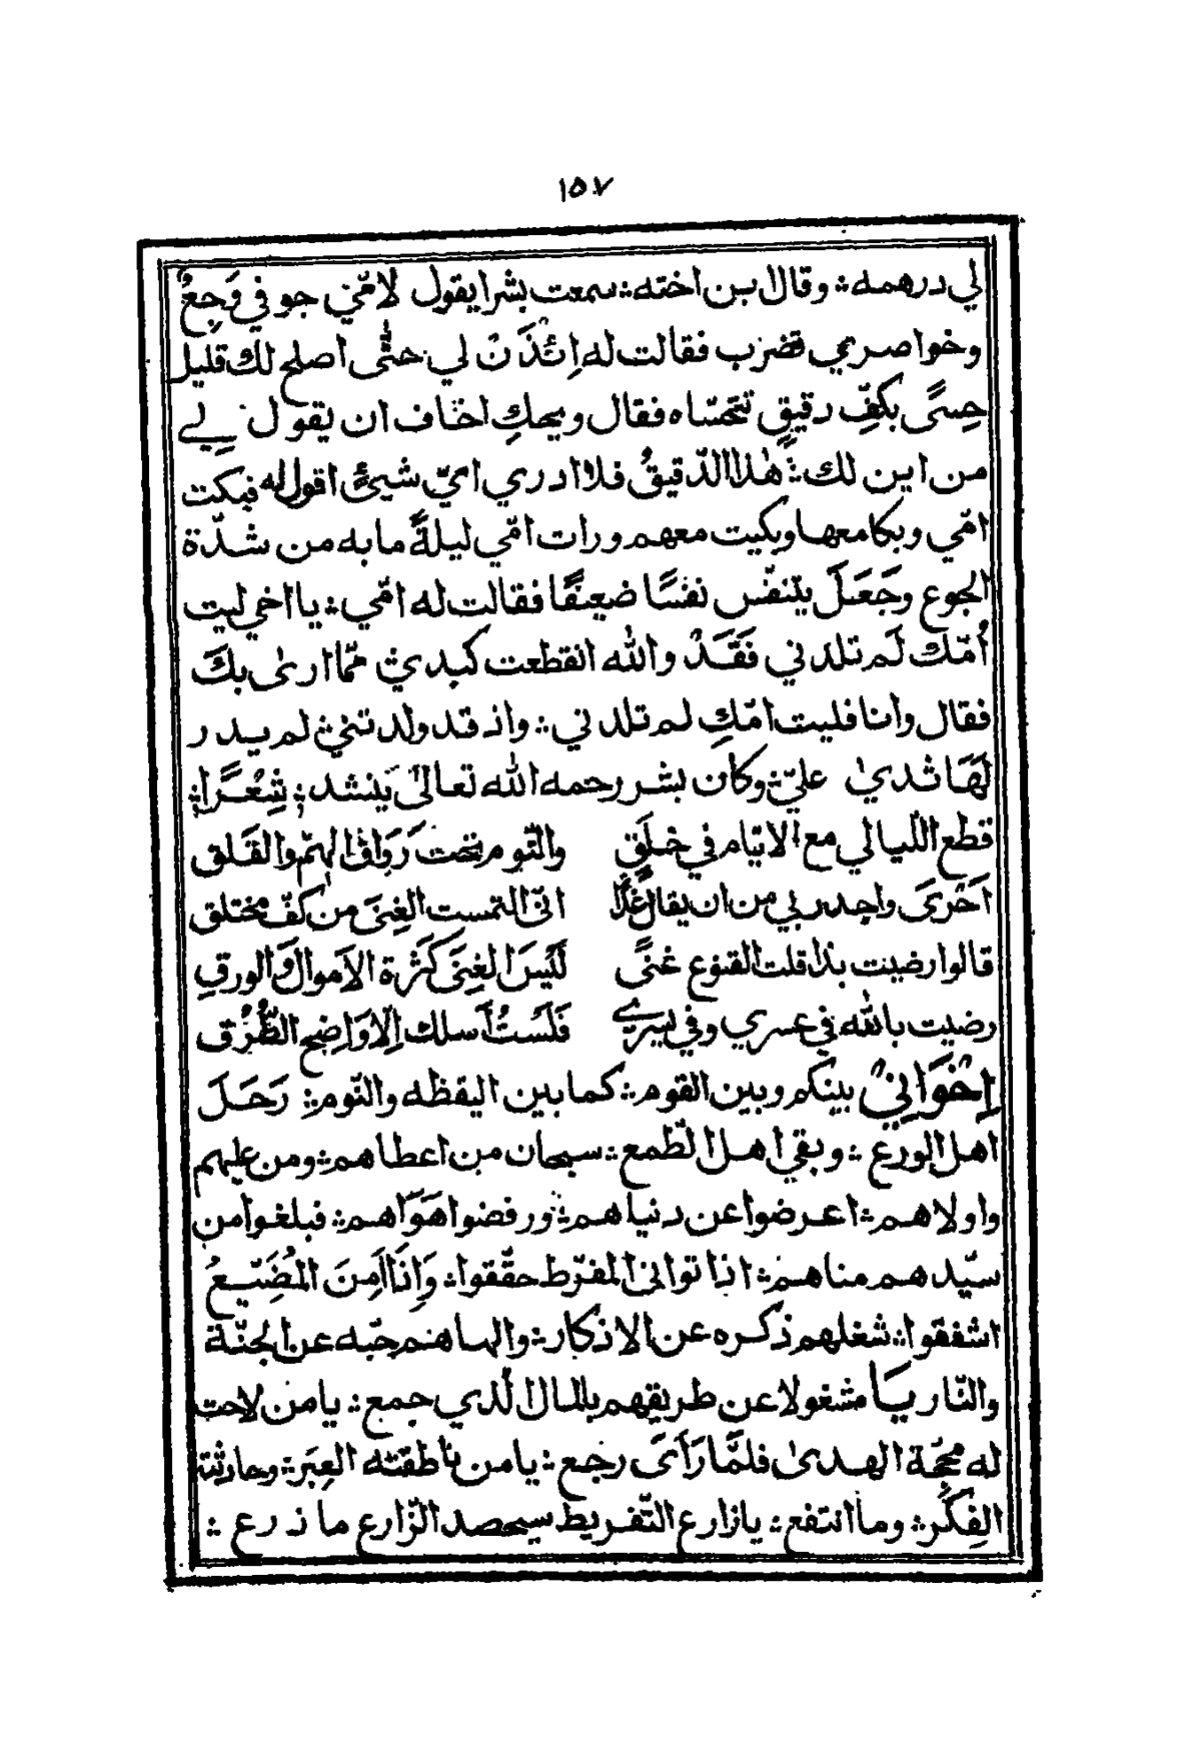 ١٥٧
لي درهمه ؞ وقال ابن اخته ؞ سمعت بشرا يقول لامّي جوفي وَجِعٌ
وخواصري تضرب فقالت له اِئْذَنْ لي حتّٰى اصلح لك قليل
حِسىً بكفِّ دقيقٍ تتحسّاه فقال ويحكِ اخاف ان يقول لي
من اين لك ؞ هٰذا الدّقيقُ فلا ادري ايّ شيئٍ اقول له فبكت
امّي وبكا معها وبكيت معهم ورات امّي ليلةً ما به من شدّة
الجوع وجَعَلَ يتنفّس نفسًا ضعيفًا فقالت له امّي ؞ يا اخي ليت
أُمّك لَم تلدني فَقَدْ والله انقطعت كبدي ممّا ارىٰ بكَ
فقال وانا فليت امّكِ لم تلدني ؞ واذ قد ولدتني لم يدر
لَهَا ثديٰ عليّ ؞ وكان بشر رحمه الله تعالىٰ يَنشد ؞ شِعْرًا ؞
قطع اللّيالي مع الايّام في خلَقٍ والنّوم تحت رَوَاق الهمّ والقَلق
اَحْرَى واجدر بي من ان يقال غدًا انّي التمست الغِنَى من كفّ مختلق
قالوا رضيت بذا قلت القنوع غنًى لَيْسَ الغِنَى كَثرة الاَموال وَالورقِ
رضيت بالله في عسري وفي يسري فَلَسْتُ أَسلك اِلّا وَاضِح الطُّرُق
اِخْوَانِيْ بينكم وبين القوم ؞ كما بين اليقظه والنّوم ؞ رَحَلَ
اهل الورع ؞ وبقي اهل الطّمع ؞ سبحان من اعطاهم ؞ ومن عليهم
واولاهم ؞ اعرضوا عن دنياهم ؞ ورفضوا هَوَاهم ؞ فبلغوا من
سيّدهم مناهم ؞ اذا توانى المفرّط حقّقوا ؞ وَاِذَا اَمِنَ المُضَيّعُ
اشفقوا ؞ شغلهم ذكره عن الاذكار ؞ والهاهم حبّه عن الجنّة
والنّار يَا مشغولا عن طريقهم بالمال الّذي جمع ؞ يا من لاحت
له محجّة الهدىٰ فلمّا رَأَىَ رجع ؞ يا من ناطقته العِبَر ؞ وحادثته
الفِكَر ؞ وما انتفع ؞ يا زارع التّفريط سيحصد الزّارع ما زرع ؞